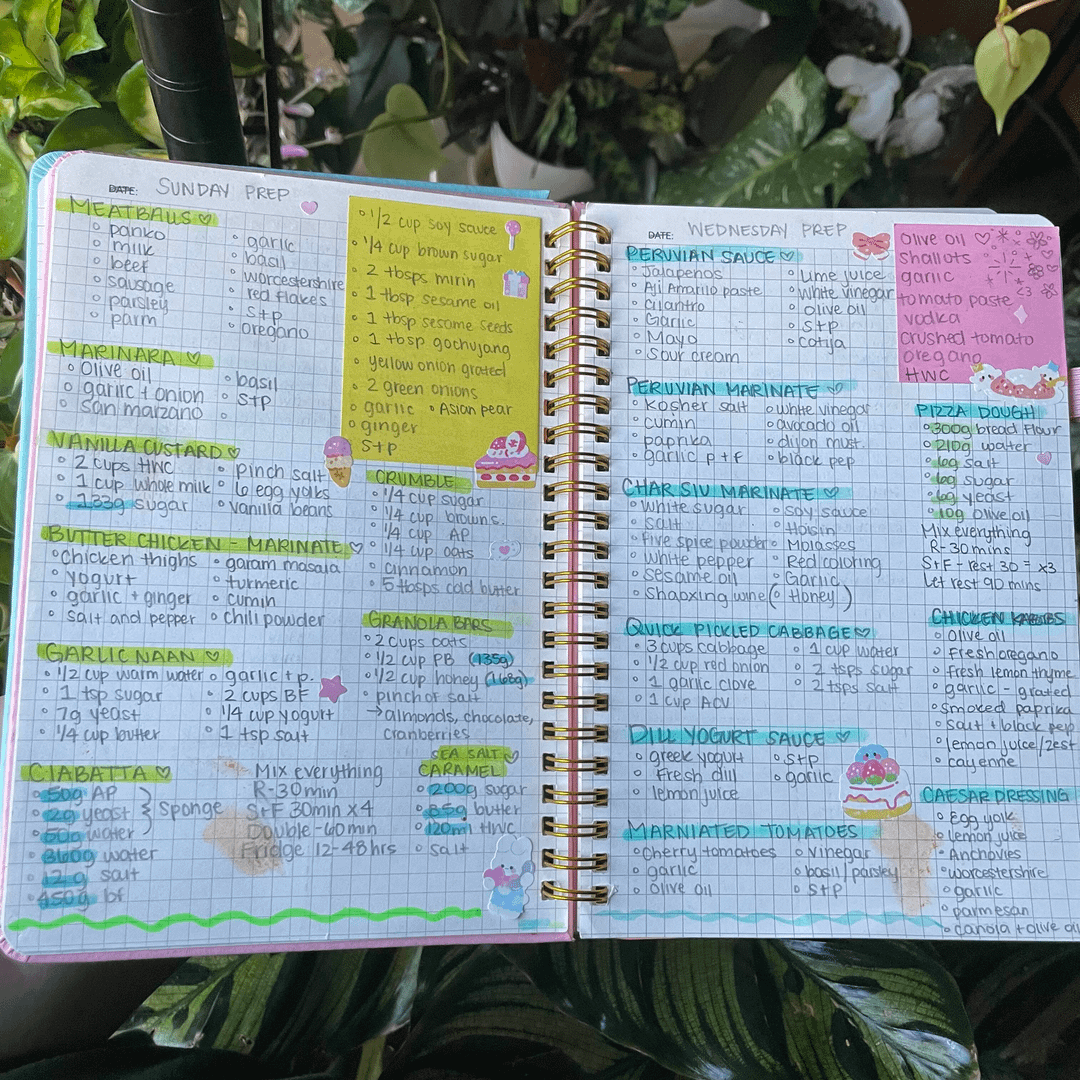 DATE: SUNDAY PREP
MEATBALLS
panko
milk
beef
sausage
parsley
parm
garlic
basil
worcestershire
red flakes
S+p
oregano
MARINARA
olive oil
garlic + onion
san marzano
basil
S+p
VANILLA CUSTARD
2 cups HWC
1 cup whole milk
133g sugar
pinch salt
6 egg yolks
vanilla beans
BUTTER CHICKEN - MARINATE
chicken thighs
yogurt
garlic + ginger
salt and pepper
garam masala
turmeric
cumin
chili powder
GARLIC NAAN
1/2 cup warm water
1 tsp sugar
7g yeast
1/4 cup butter
garlic + p.
2 cups BF
1/4 cup yogurt
1 tsp salt
CIABATTA
50g AP
2g yeast
50g water
Sponge
360g water
12g salt
450g bf
Mix everything
R-30 min
S+F 30min x4
Double - 60 min
Fridge 12-48 hrs
1/2 cup soy sauce
1/4 cup brown sugar
2 tbsps mirin
1 tbsp sesame oil
1 tbsp sesame seeds
1 tbsp gochujang
yellow onion grated
2 green onions
garlic
Asian pear
ginger
S+p
CRUMBLE
1/4 cup sugar
1/4 cup brown s.
1/4 cup AP
1/4 cup oats
cinnamon
5 tbsps cold butter
GRANOLA BARS
2 cups oats
1/2 cup PB (135g)
1/2 cup honey (168g)
pinch of salt
→ almonds, chocolate,
cranberries
SEA SALT
CARAMEL
200g sugar
85g butter
120ml HWC
salt
DATE: WEDNESDAY PREP
PERUVIAN SAUCE
Jalapenos
Aji Amarillo paste
Cilantro
Garlic
Mayo
Sour cream
Lime juice
White vinegar
olive oil
S+p
Cotija
PERUVIAN MARINATE
Kosher salt
cumin
paprika
garlic p + f
white vinegar
avocado oil
dijon must.
black pep
CHAR SIU MARINATE
White sugar
Salt
Five spice powder
White pepper
Sesame oil
Shaoxing wine
soy sauce
Hoisin
Molasses
Red coloring
Garlic
( Honey )
QUICK PICKLED CABBAGE
3 cups cabbage
1/2 cup red onion
1 garlic clove
1 cup ACV
1 cup water
2 tsps sugar
2 tsps salt
DILL YOGURT SAUCE
greek yogurt
Fresh dill
lemon juice
S+p
garlic
MARNIATED TOMATOES
cherry tomatoes
garlic
olive oil
vinegar
basil/parsley
S+P
Olive oil
shallots
garlic
tomato paste
vodka
crushed tomato
oregano
HWC
<3
PIZZA DOUGH
300g bread flour
210g water
6g salt
6g sugar
6g yeast
10g olive oil
Mix everything
R-30 mins
S+F - rest 30 = x3
Let rest 90 mins
CHICKEN KABOBS
olive oil
fresh oregano
fresh lemon thyme
garlic - grated
smoked paprika
salt + black pep
lemon juice/zest
cayenne
CAESAR DRESSING
Egg yolk
lemon juice
Anchovies
worcestershire
garlic
parmesan
canola + olive oil